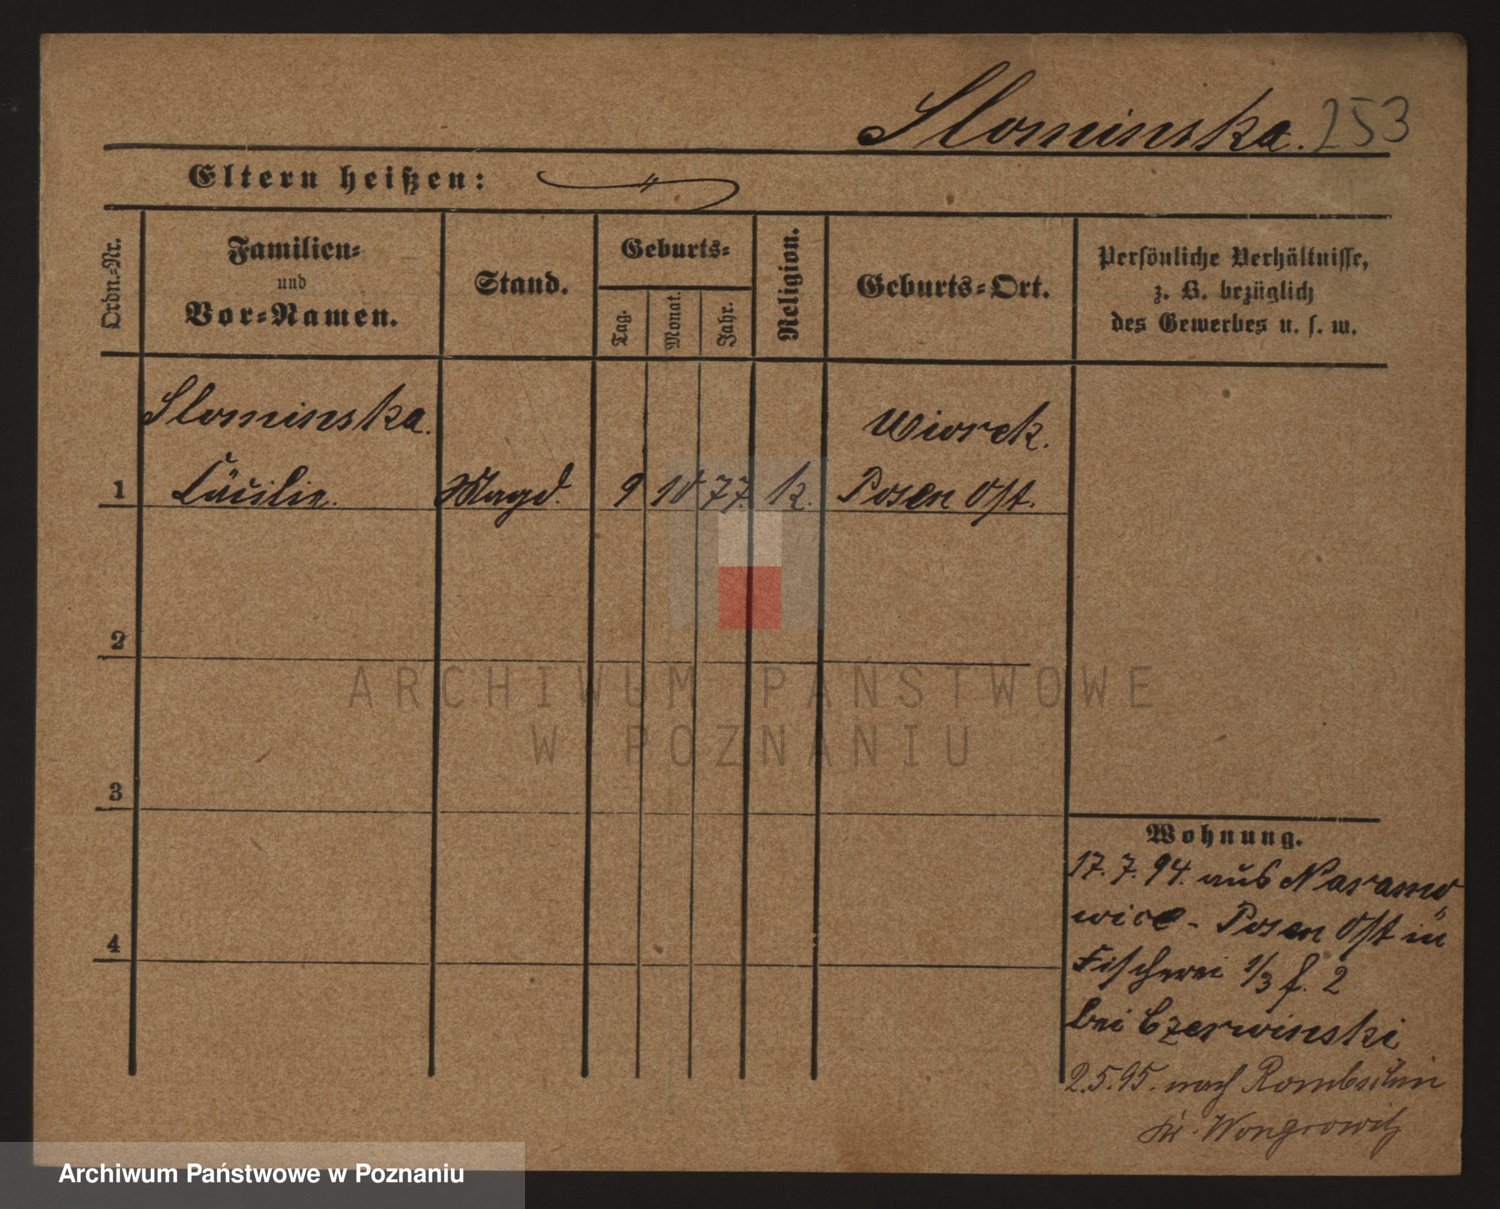 Slominska. 253
Eltern heißen: "
Ordn.-Nr.
Familien-
und
Vor-Namen.
Stand.
Geburts-
Tag.
Monat.
Jahr.
Religion.
Geburts-Ort.
Persönliche Verhältnisse,
z. B. bezüglich
des Gewerbes u. s. w.
Slominska.
Wiorek.
1 Cäcilie. Magd. 9 10 77. k. Posen Ost.
2
3
4
Wohnung.
17. 7. 94. aus Naramo
wice - Posen Ost in
Fischerei 1/3 f. 2
bei Czerwinski
2.5.95. nach
Kr. Wongrowitz
ARCHIWUM PAŃSTWOWE
W POZNANIU
Archiwum Państwowe w Poznaniu